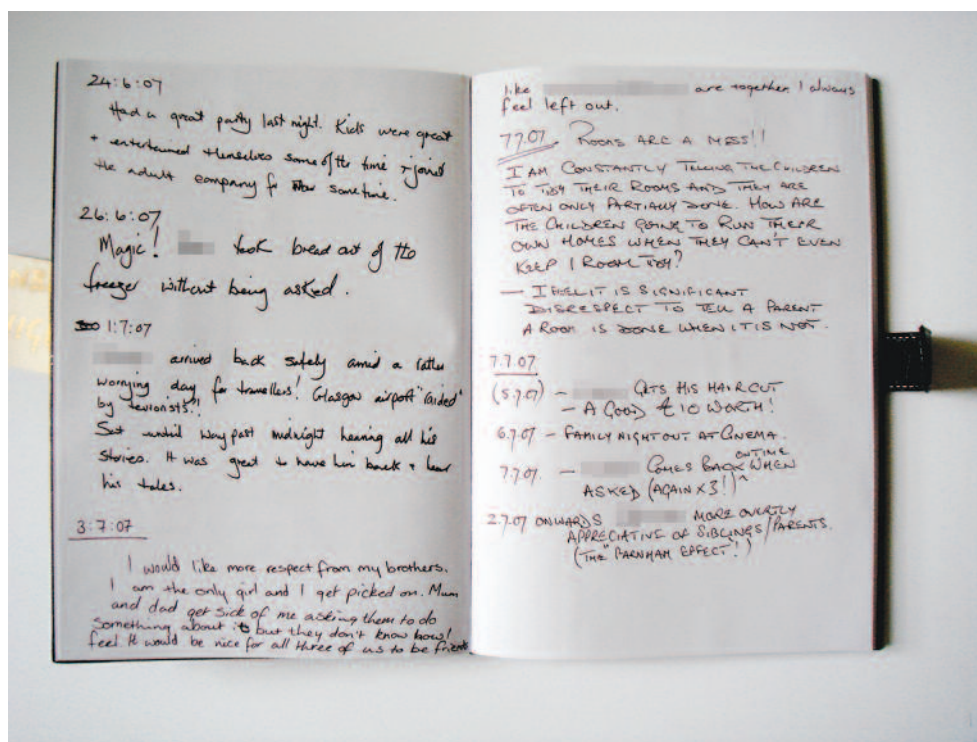 24:6:07
Had a great party last night. Kids were great
+ entertained themselves some of the time + joined
the adult company for some time.
26:6:07
Magic! took bread out of the
freezer without being asked.
1:7:07
arrived back safely amid a rather
worrying day for travellers! Glasgow airport "raided"
by terrorists"!
Sat until way past midnight hearing all his
stories. It was great to have him back + hear
his tales.
3:7:07
I would like more respect from my brothers.
I am the only girl and I get picked on. Mum
and dad get sick of me asking them to do
something about it but they don't know how I
feel. It would be nice for all three of us to be friends
like are together I always
feel left out.
7.7.07 ROOMS ARE A MESS!!
I AM CONSTANTLY TELLING THE CHILDREN
TO TIDY THEIR ROOMS AND THEY ARE
OFTEN ONLY PARTIALLY DONE. HOW ARE
THE CHILDREN GOING TO RUN THEIR
OWN HOMES WHEN THEY CAN'T EVEN
KEEP 1 ROOM TIDY?
— I FEEL IT IS SIGNIFICANT
DISRESPECT TO TELL A PARENT
A ROOM IS DONE WHEN IT IS NOT.
7.7.07
(5.7.07) – GETS HIS HAIR CUT
– A GOOD £10 WORTH!
6.7.07 – FAMILY NIGHT OUT AT CINEMA.
7.7.07. – COMES BACK ON TIME WHEN
ASKED (AGAIN X3!)
2.7.07 ONWARDS MORE OVERTLY
APPRECIATIVE OF SIBLINGS/PARENTS.
(THE "FARNHAM EFFECT"!)